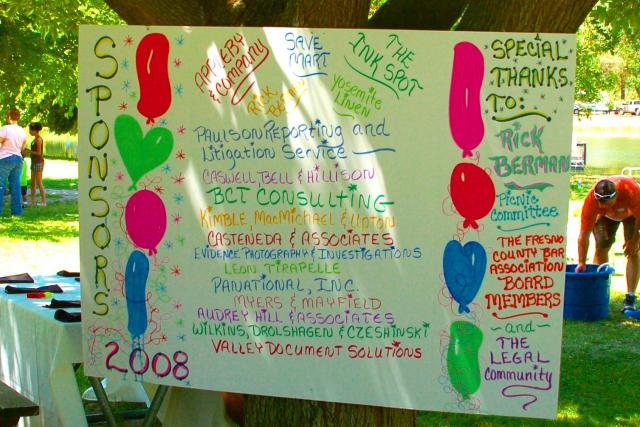 SPONSORS
2008
APPLEBY
& COMPANY
SAVE
MART
THE
INK SPOT
RICK
Yosemite
Linen
PAULSON REPORTING and
Litigation Service
CASWELL, BELL & HILLISON
BCT CONSULTING
KIMBLE, MACMICHAEL & UPTON
CASTENEDA & ASSOCIATES
EVIDENCE PHOTOGRAPHY & INVESTIGATIONS
LEON TIRAPELLE
PANATIONAL, INC.
MYERS & MAYFIELD
AUDREY HILL & ASSOCIATES
WILKINS, DROLSHAGEN & CZESHINSKI
VALLEY DOCUMENT SOLUTIONS
SPECIAL
THANKS
TO:
RICK
BERMAN
Picnic
Committee
THE FRESNO
COUNTY BAR
ASSOCIATION
BOARD
MEMBERS
-and-
THE
LEGAL
Community